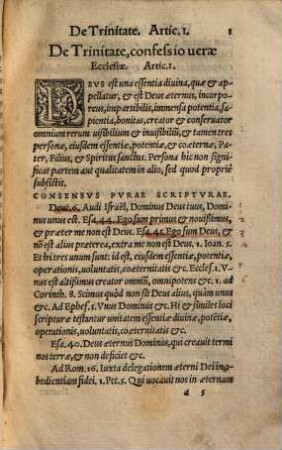 De Trinitate. Artic. I. 1
De Trinitate, confessio veræ
Ecclesiæ. Artic. 1.
DEVS est una essentia divina, quæ & ap-
pellatur, & est Deus æternus, incorpo-
reus, impartibilis, immensa potentia, sa-
pientia, bonitas, creator & conservator
omnium rerum uisibilium & inuisibiliū, & tamen tres
personæ, eiusdem essentiæ, potentiæ, & coæternæ, Pa-
ter, Filius, & Spiritus sanctus. Persona hic non signi-
ficat partem aut qualitatem in alio, sed quod propriè
subsistit.
CONSENSVS PVRAE SCRIPTVRAE.
Deut. 6. Audi Israël, Dominus Deus tuus, Domi-
nus unus est. Esa. 44. Ego sum primus & nouissimus,
& præter me non est Deus. Esa. 45. Ego sum Deus, &
nō est alius præterea, extra me non est Deus. 1. Ioan. 5.
Et hi tres unum sunt: id est, eiusdem essentiæ, potentiæ,
operationis, uoluntatis, coæternitatis &c. Ecclesi. 1. V-
nus est altißimus creator omniū, omnipotens &c. 1. ad
Corinth. 8. Scimus quòd non sit Deus alius, quàm unus
&c. Ad Ephes. 5. Vnus Dominus &c. Hi & similes loci
scripturæ testantur unitatem essentiæ diuinæ, potētiæ,
operationis, uoluntatis, coæternitatis &c.
Esa. 40. Deus æternus Dominus, qui creauit termi
nos terræ, & non deficiet &c.
Ad Rom. 16. Iuxta delegationem æterni Dei in o-
bedientiam fidei. 1. Pet. 5. Qui uocauit nos in æternam